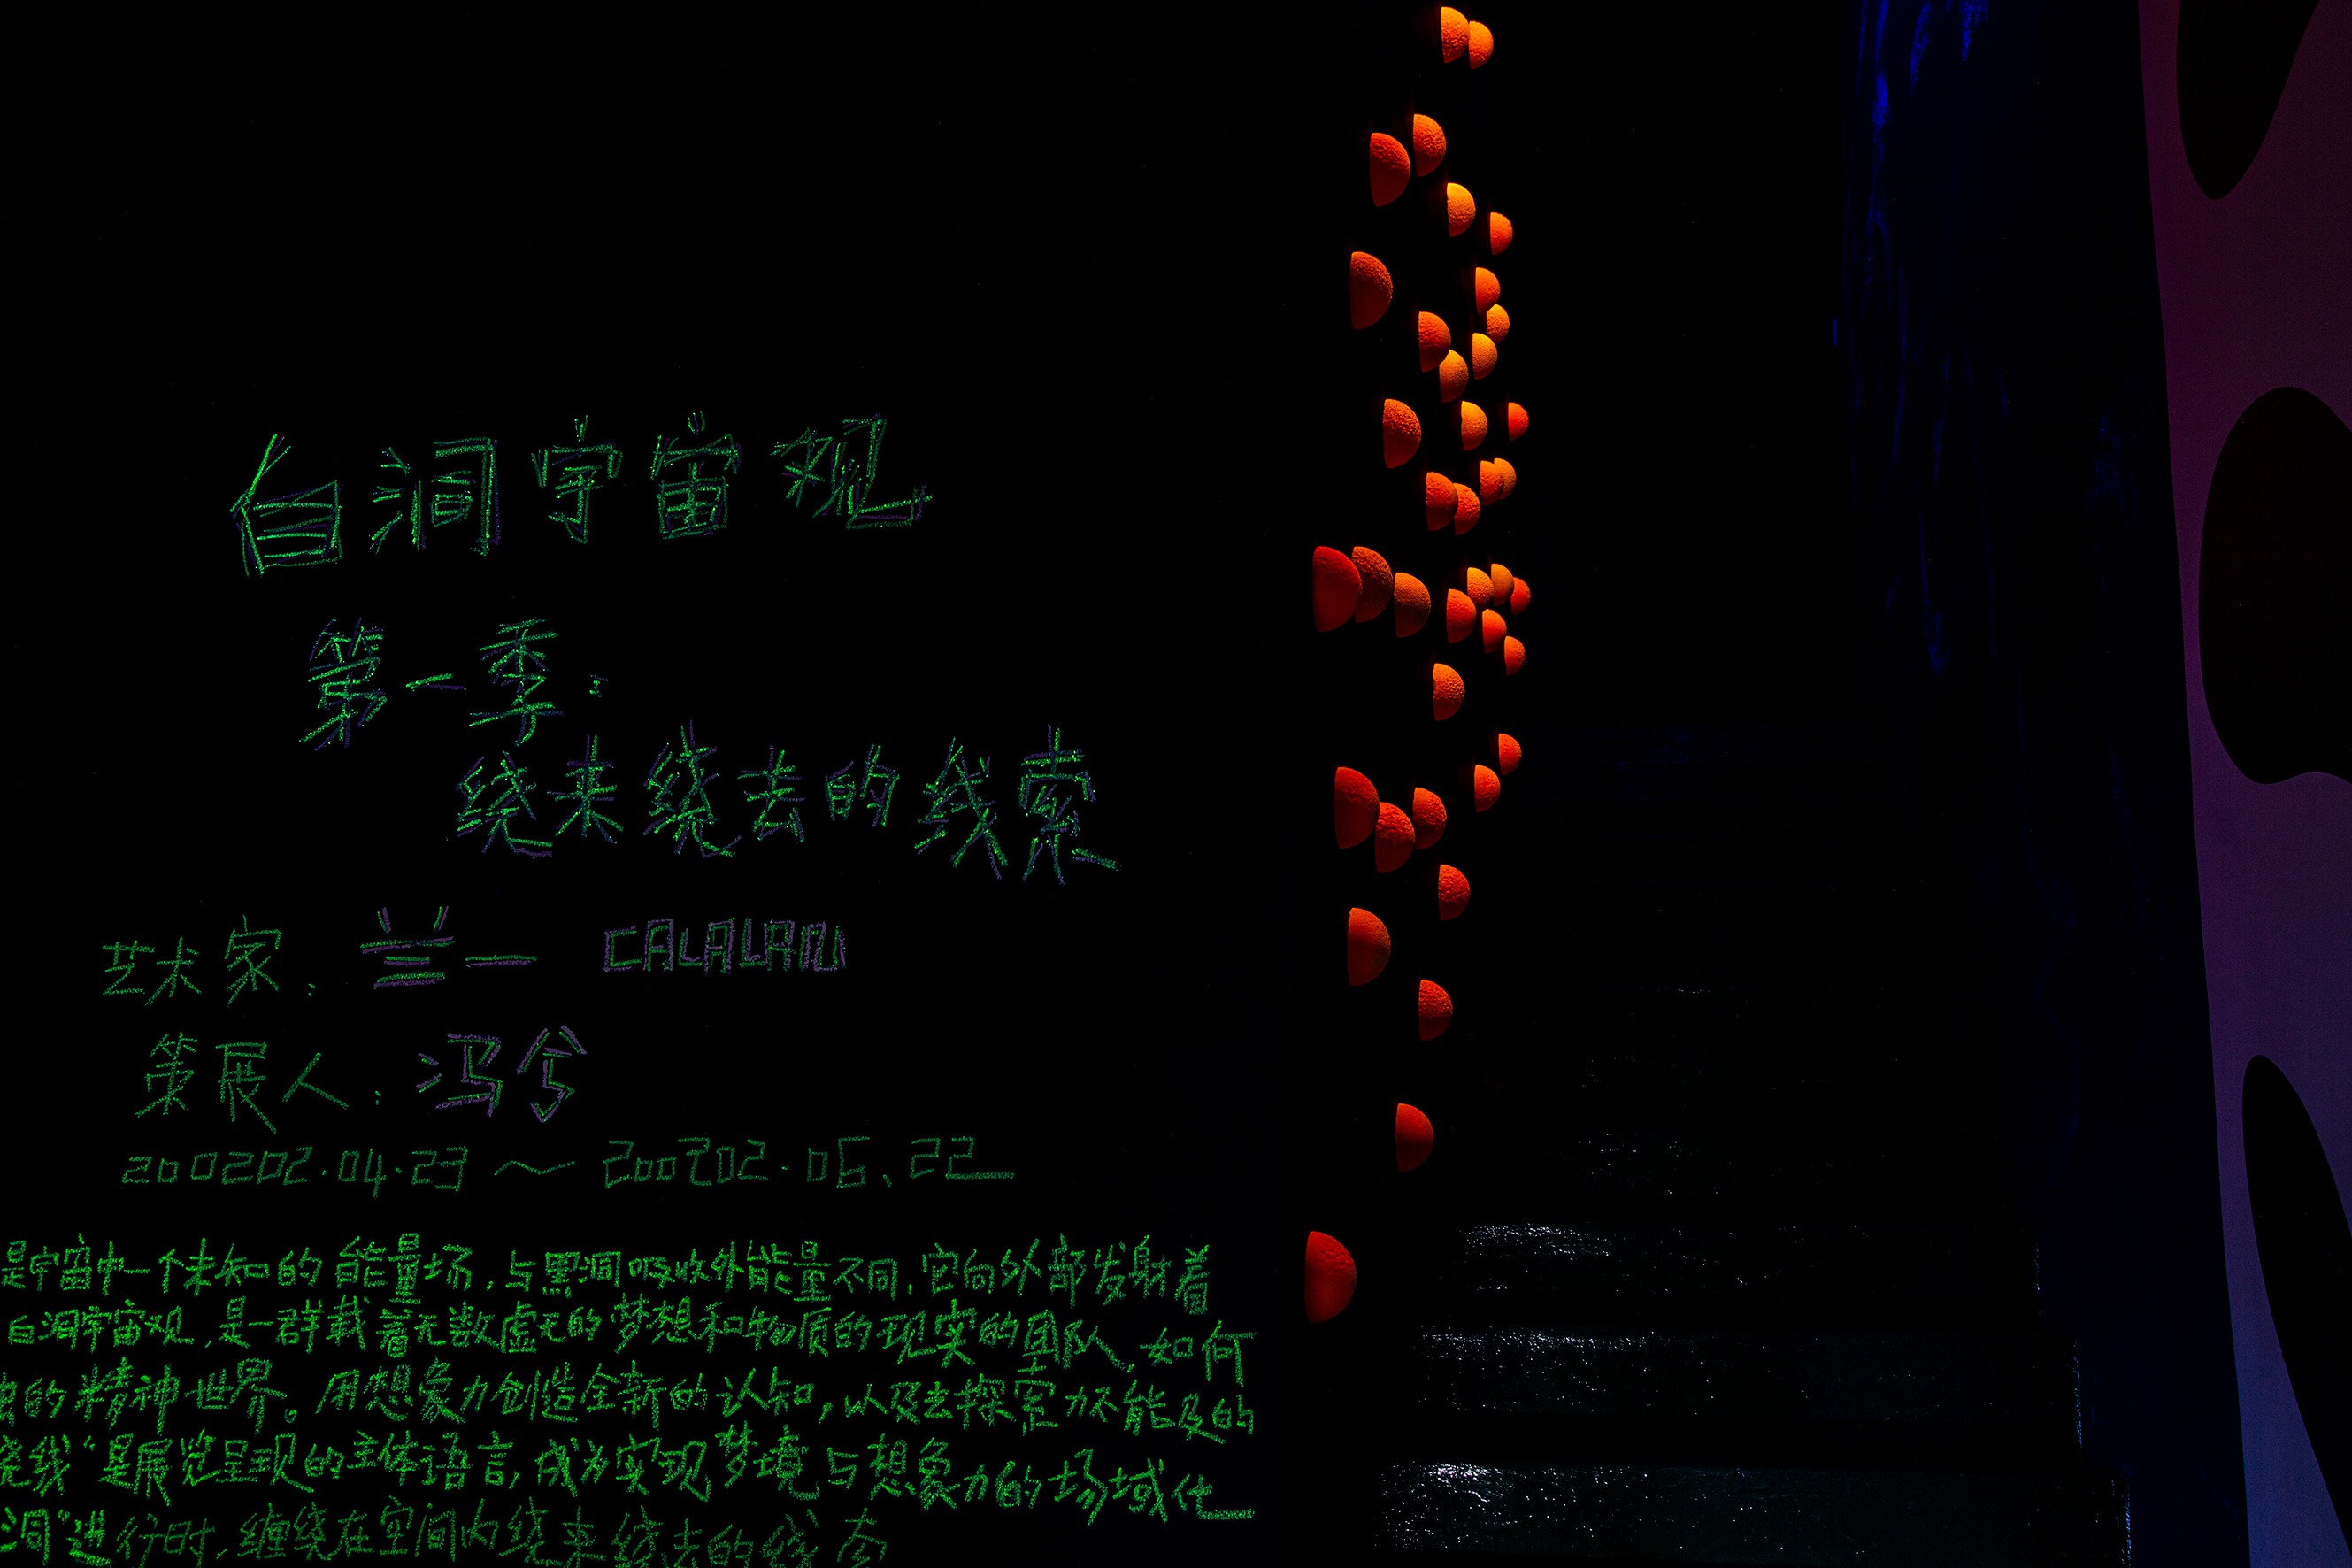 白洞宇宙观
第一季：
绕来绕去的线索
艺术家： 兰一 CALALAN
策展人：冯兮
200202.04.23～200202.05.22
是宇宙中一个未知的能量场，与黑洞吸收外能量不同，它向外部发射着
白洞宇宙观，是一群载着无数虚无的梦想和物质的现实的团队，如何
的精神世界。用想象力创造全新的认知，以及去探索力不能及的
绕线"是展览呈现的主体语言，成为实现梦境与想象力的场域化
洞"进行时，缠绕在空间内绕来绕去的线索